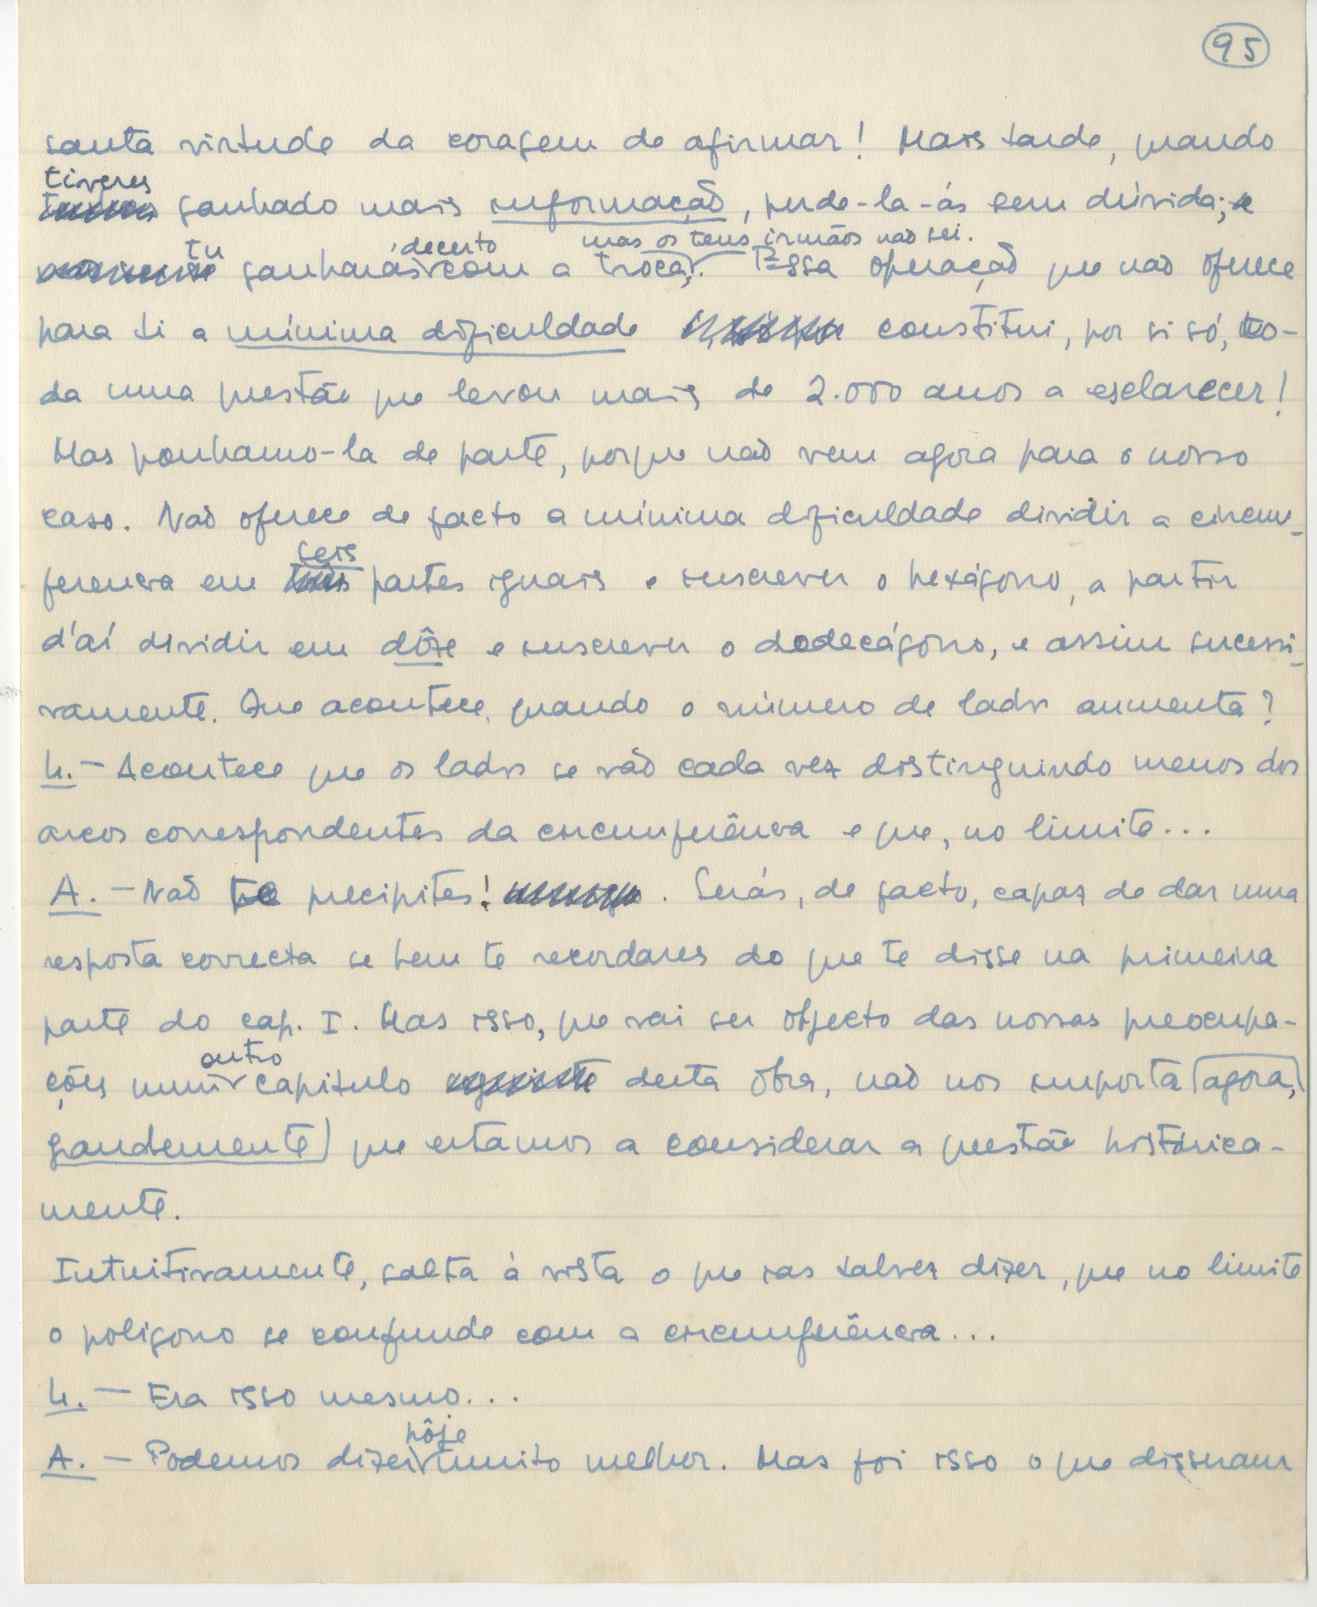 95
santa virtude da coragem de afirmar! Mais tarde, quando
tiveres
ganhado mais informação, perde-la-ás sem dúvida; e
tu decerto mas os teus irmãos não sei.
ganharás com a troca. Essa operação que não oferece
para ti a mínima dificuldade constitui, por si só, to-
da uma questão que levou mais de 2.000 anos a esclarecer!
Mas ponhamo-la de parte, porque não vem agora para o nosso
caso. Não oferece de facto a mínima dificuldade dividir a circun-
seis
ferencia em partes iguais e inscrever o hexágono, a partir
d'aí dividir em dôze e inscrever o dodecágono, e assim sucessi-
vamente. Que acontece, quando o número de lados aumenta?
L. — Acontece que os lados se vão cada vez distinguindo menos dos
arcos correspondentes da circunferência e que, no limite...
A. — Não te precipites! . Serás, de facto, capaz de dar uma
resposta correcta se bem te recordares do que te disse na primeira
parte do cap. I. Mas isso, que vai ser objecto das nossas preocupa-
outro
ções num capitulo desta obra, não nos importa agora,
grandemente que estamos a considerar a questão histórica-
mente.
Intuitivamente, salta à vista o que ias talvez dizer, que no limite
o poligono se confunde com a circunferência...
L. — Era isso mesmo...
hôje
A. — Podemos dizer muito melhor. Mas foi isso o que disseram